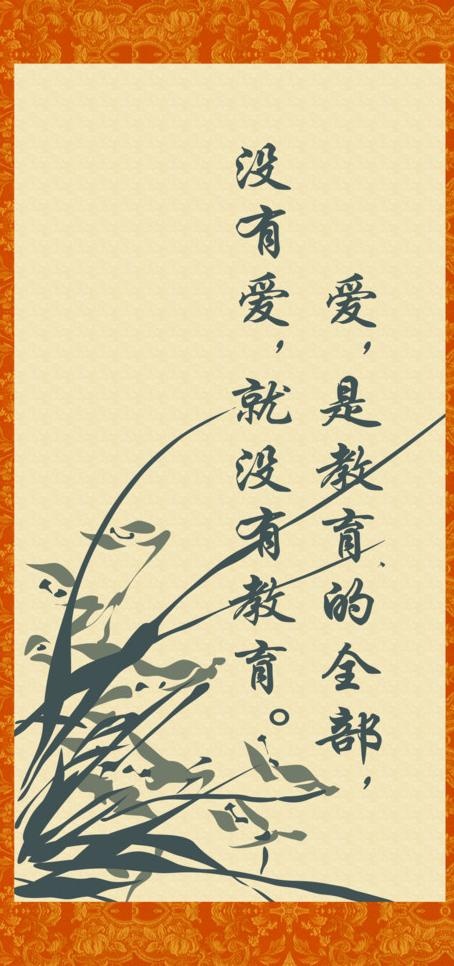 爱，是教育的全部，
没有爱，就没有教育。